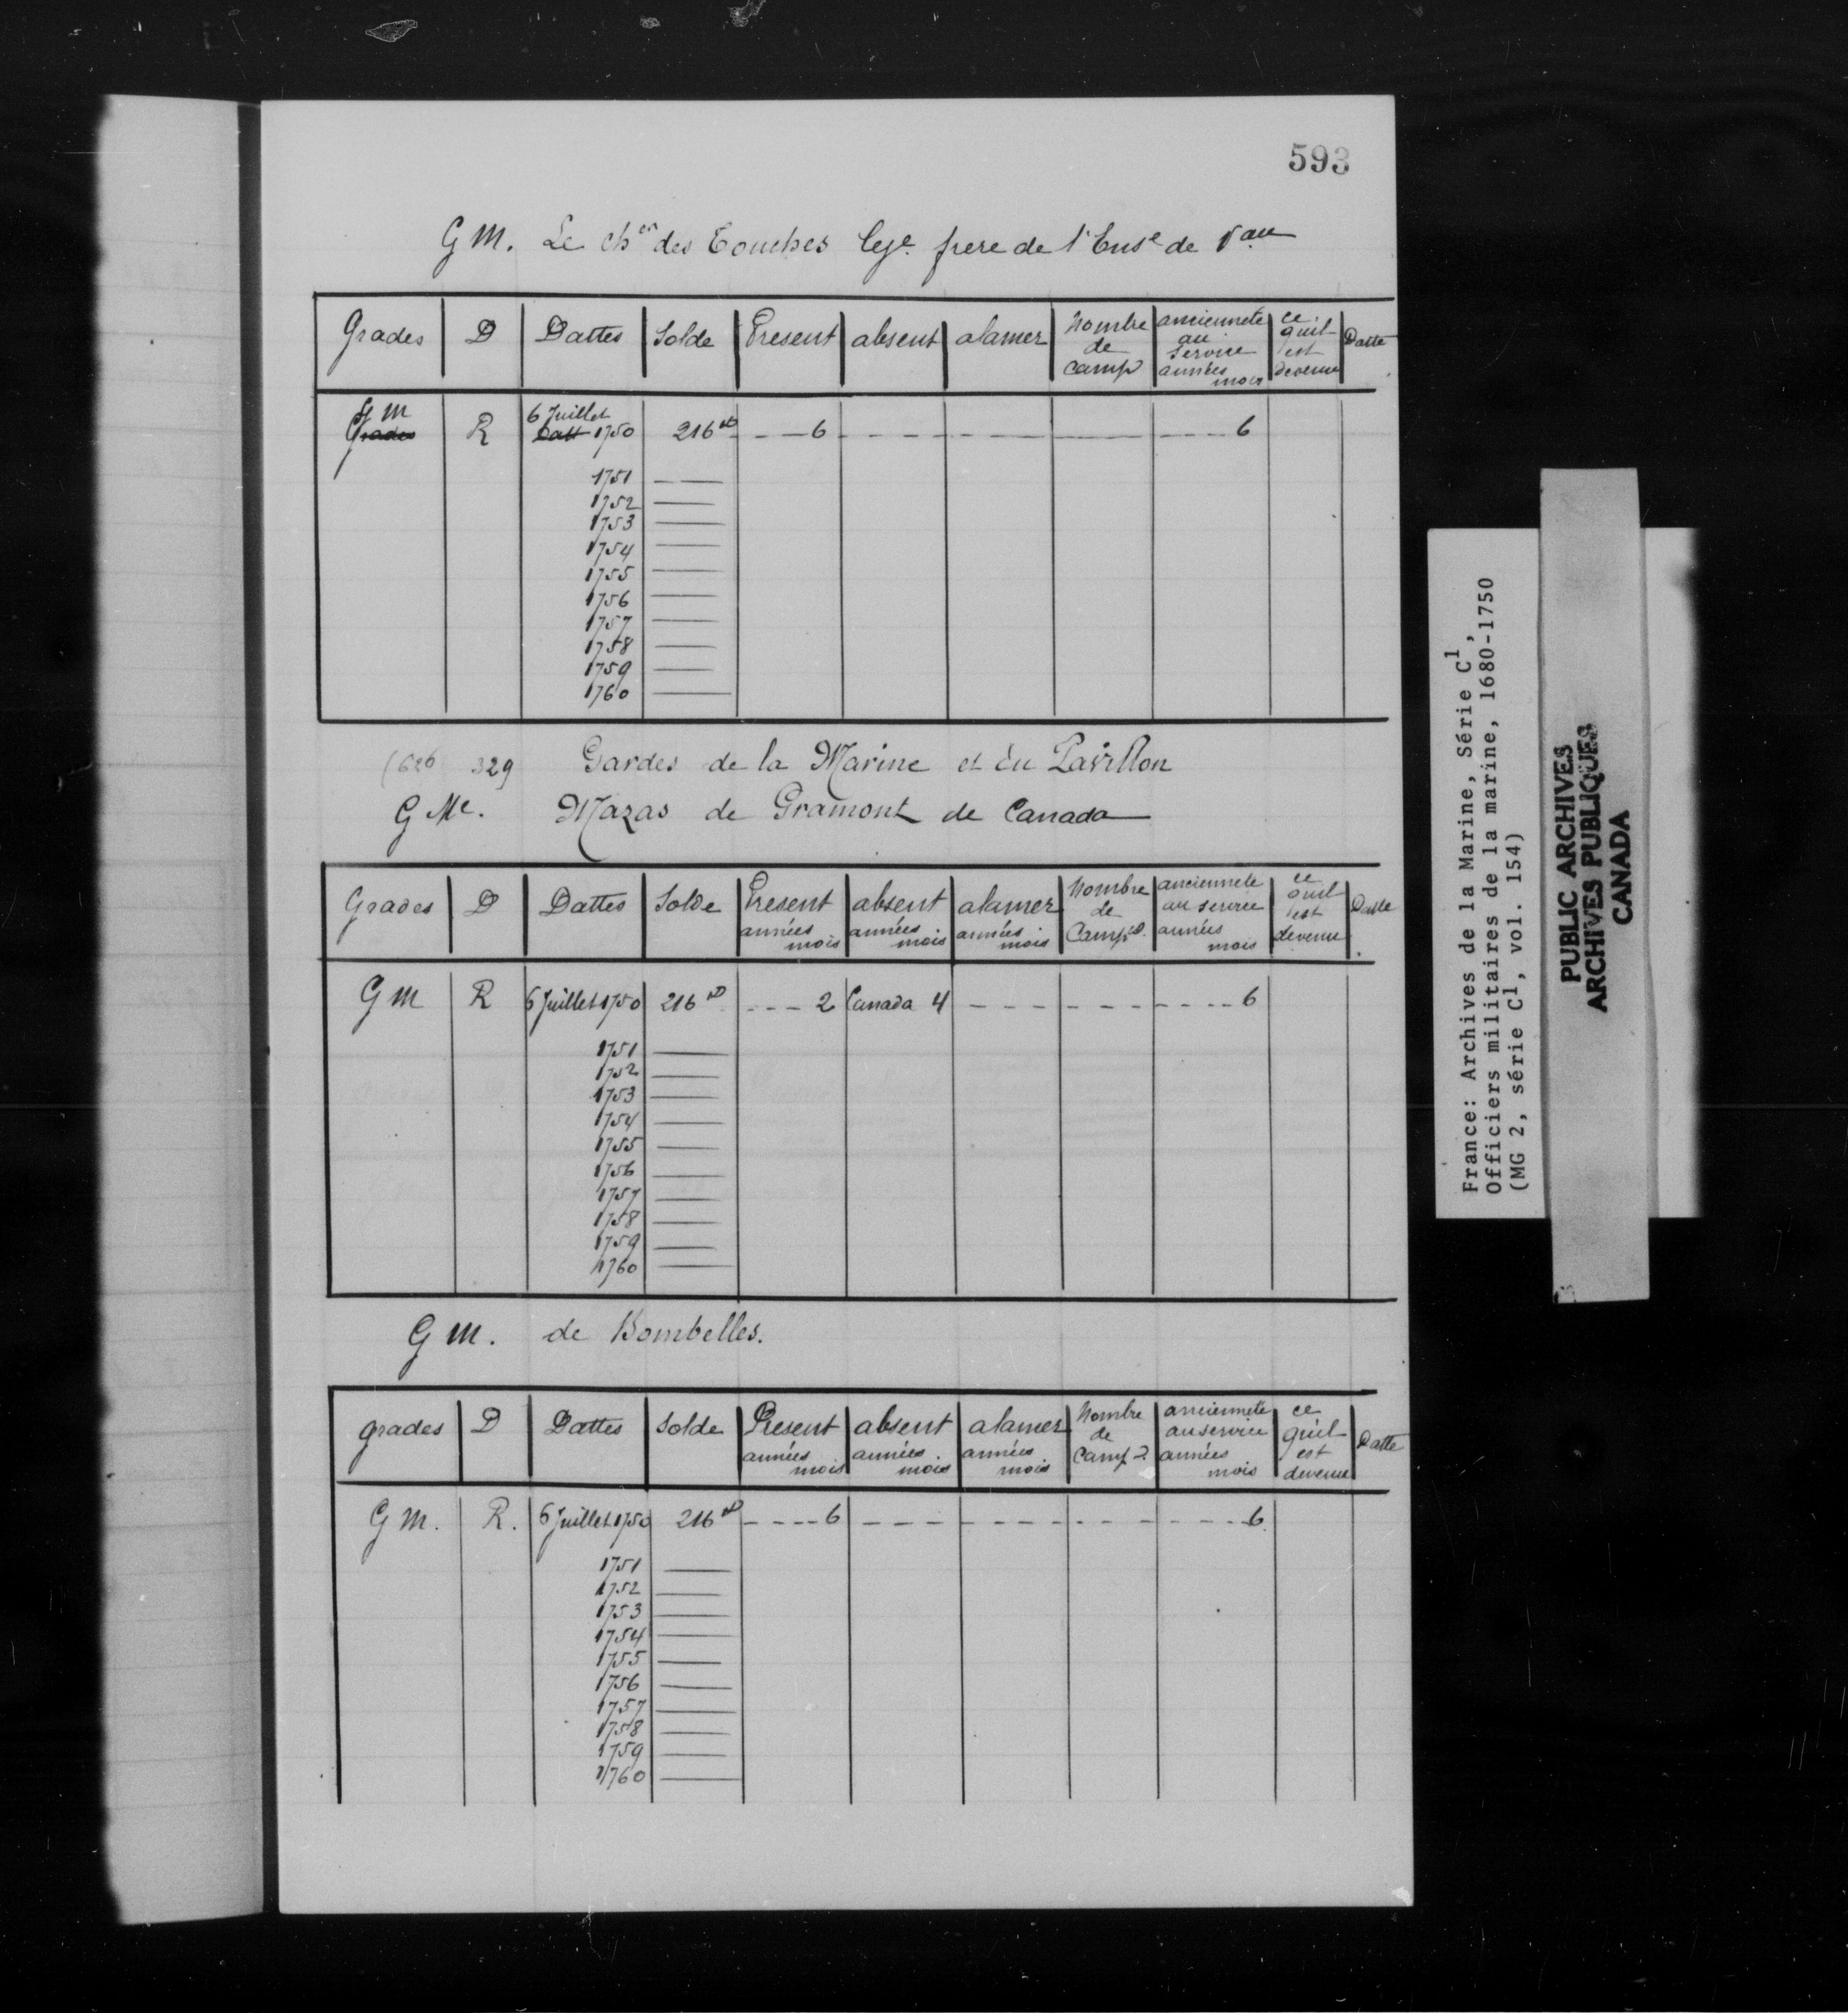 593
G M. Le Ch.er des Touches Cy.e frere de l'Ens.e de V.au
Grades D Dattes Solde Present absent alamer Nombre de Camp ancienneté au Service années mois ce quil est devenu Datte
G M
Grades R 6 Juillet Datt 1750 216 6 6
1751
1752
1753
1754
1755
1756
1757
1758
1759
1760
(626 329 Gardes de la Marine et du Pavillon
G Me. Mazas de Gramont de Canada
Grades D Dattes Solde Present années mois absent années mois alamer années mois Nombre de Camp. ancienneté au service années mois ce quil est devenu Datte
G M R 6 Juillet 1750 216 2 Canada 4 6
1751
1752
1753
1754
1755
1756
1757
1758
1759
1760
G M. de Bombelles.
grades D Dattes Solde Present années mois absent années mois alamer années mois Nombre de Camp. ancienneté au service années mois ce qu'il est devenu Datte
G M. R. 6 Juillet 1750 216 6 6
1751
1752
1753
1754
1755
1756
1757
1758
1759
1760
France: Archives de la Marine, Série C1,
Officiers militaires de la marine, 1680-1750
(MG 2, série C1, vol. 154)
PUBLIC ARCHIVES
ARCHIVES PUBLIQUES
CANADA